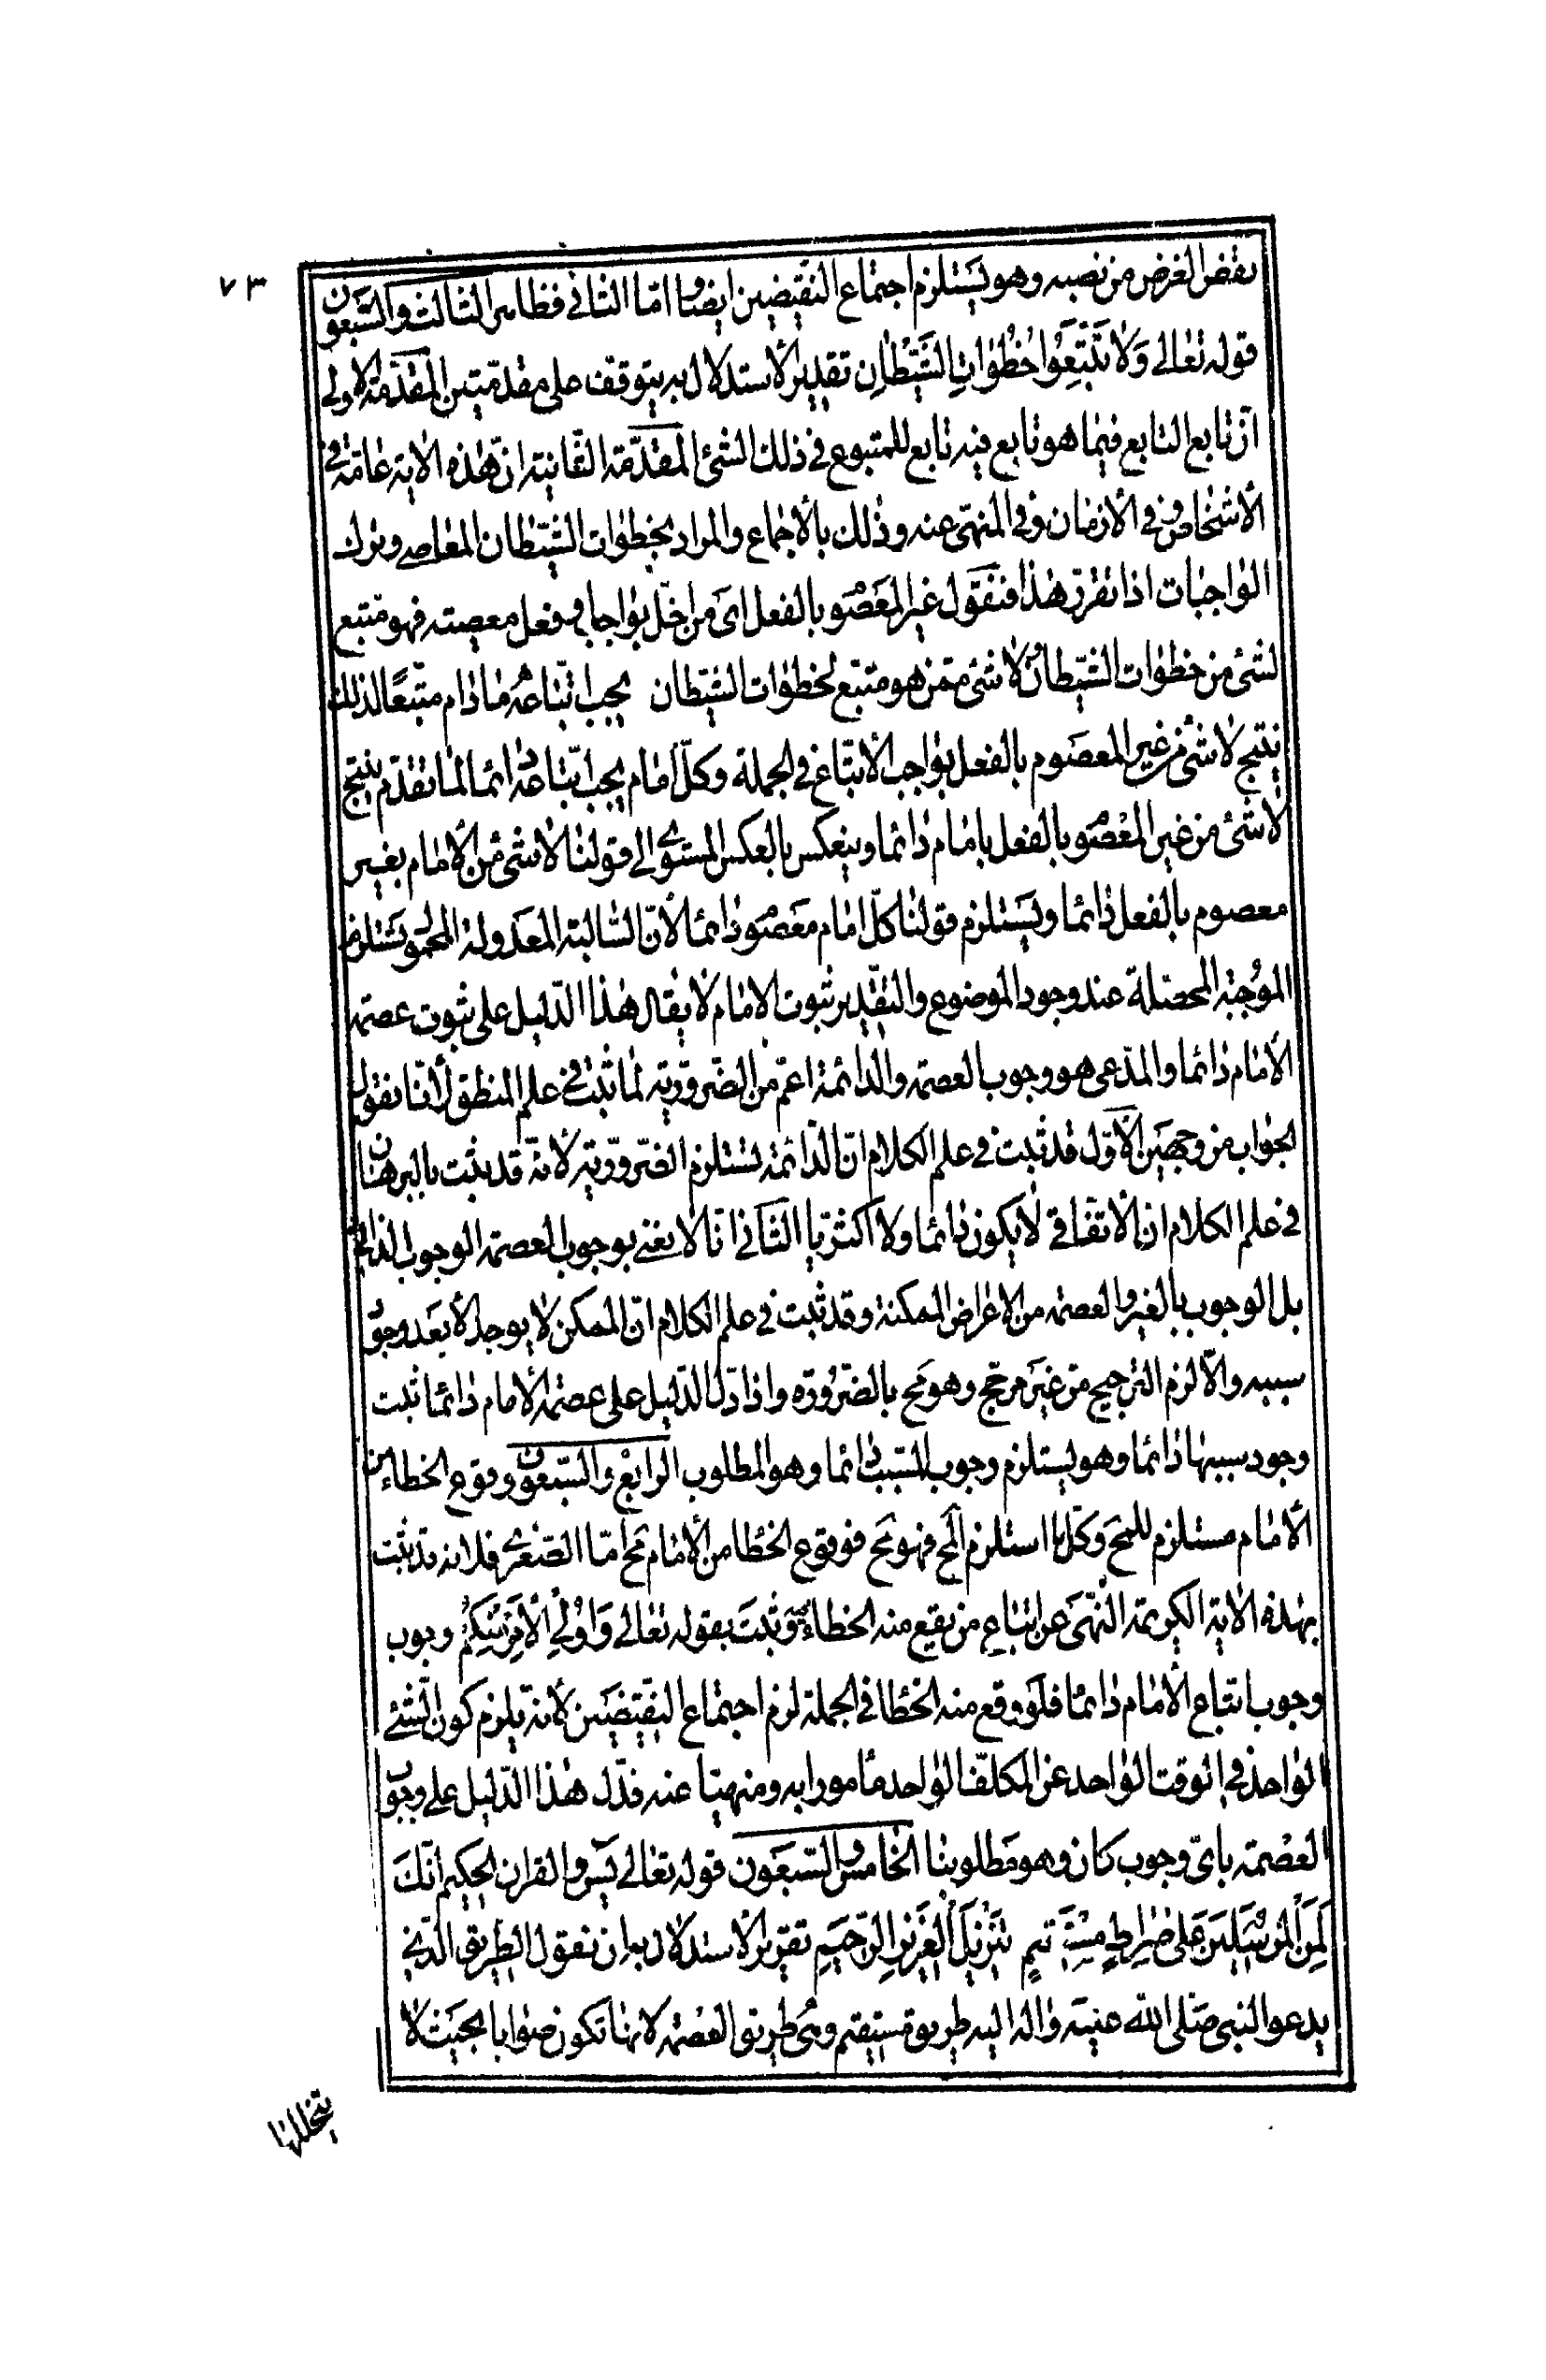 ٧٣
نقض الغرض من نصبه وهو يستلزم اجتماع النقيضين ايضا واما الثانى فظاهر الثالث والسبعون
قوله تعالى وَلا تَتَّبِعُوا خُطُواتِ الشَّيْطانِ تقرير الاستدلال به يتوقف على مقدمتين المقدمة الاولى
انّ تابع التابع فيما هو تابع فيه تابع للمتبوع فى ذلك الشئ المقدّمة الثانية ان هذه الاية عامّة فى
الاشخاص وفى الازمان وفى المنهىّ عنه وذلك بالاجماع والمراد بخطوات الشيطان المعاصى وترك
الواجبات اذا تقرّر هذا فنقول غير المعصوم بالفعل اى من اخلّ بواجب او فعل معصيته فهو متّبع
لشئ من خطوات الشيطان ولا شئ ممّن هو متبع لخطوات الشيطان يجب اتّباعه ما دام متّبعًا لذلك
ينتج لا شئ من غير المعصوم بالفعل بواجب الاتّباع فى الجملة وكلّ امام يجب اتّباعه دائما لما تقدّم ينتج
لا شئ من غير المعصوم بالفعل بامام دائما وينعكس بالعكس المستوى الى قولنا لا شئ من الامام بغير
معصوم بالفعل دائما ويستلزم قولنا كلّ امام معصوم دائما لانّ السّالبة المعدولة المحمول تستلزم
الموجبة المحصّلة عند وجود الموضوع والتقدير ثبوت الامام لا يقال هذا الدّليل على ثبوت عصمة
الامام دائما والمدّعى هو وجوب العصمة والدائمة اعمّ من الضّرورية لما ثبت فى علم المنطق لأنّا نقول
الجواب من وجهين الاوّل قد ثبت فى علم الكلام انّ الدّائمة تستلزم الضّروريّة لانّه قد ثبت بالبرهان
فى علم الكلام ان الاتفاقى لا يكون دائما ولا اكثريا الثانى انّا لا نعنى بوجوب العصمة الوجوب الذاتى
بل الوجوب بالغير والعصمة من الاعراض الممكنة وقد ثبت فى علم الكلام انّ الممكن لا يوجد الا بعد وجوب
سببه والاّ لزم الترجيح من غير مرجّح وهو مح بالضّرورة واذا دلّ الدّليل على عصمة الامام دائما ثبت
وجود سببها دائما وهو يستلزم وجوب المسبّب دائما وهو المطلوب الرابع والسّبعون وقوع الخطاء من
الامام مستلزم للمح وكلّ ما استلزم المح فهو مح فوقوع الخطا من الامام مح امّا الصّغرى فلانه قد ثبت
بهذه الاية الكريمة النّهى عن اتباع من يقع منه الخطاء وثبت بقوله تعالى وَاُولِى الْاَمْرِ مِنْكُمْ وجوب
وجوب اتباع الامام دائما فلو وقع منه الخطا فى الجملة لزم اجتماع النقيضين لانه يلزم كون الشئ
الواحد فى الوقت الواحد عن المكلّف الواحد مامورا به ومنهيّا عنه فدّل هذا الدّليل على وجوب
العصمة باىّ وجوب كان وهو مطلوبنا الخامس والسّبعون قوله تعالى يس والقران الحكيم انّك
لَمِنَ الْمُرْسَلِينَ عَلى صِراطٍ مُسْتَقِيمٍ تَنْزِيلَ الْعَزِيزِ الرَّحِيمِ تقرير الاستدلال به ان نقول الطريق الّذى
يدعو النبى صلى الله عليه واله اليه طريق مستقيم وهى طريق العصمة لانها تكون صوابا بحيث لا
يتخللها